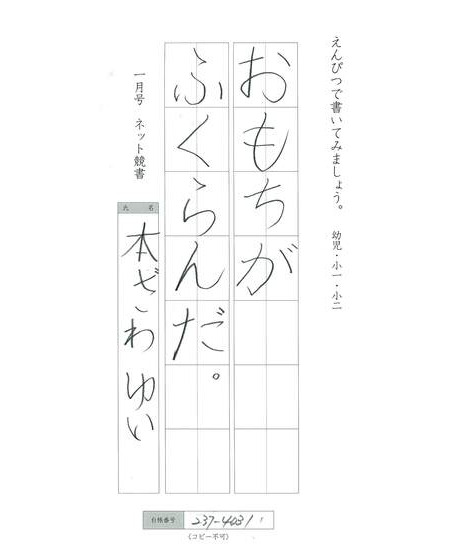 えんぴつで書いてみましょう。　幼児・小一・小二
おもちが
ふくらんだ。
一月号　ネット競書
氏名
本ざわ ゆい
台帳番号 237-4031
(コピー不可)